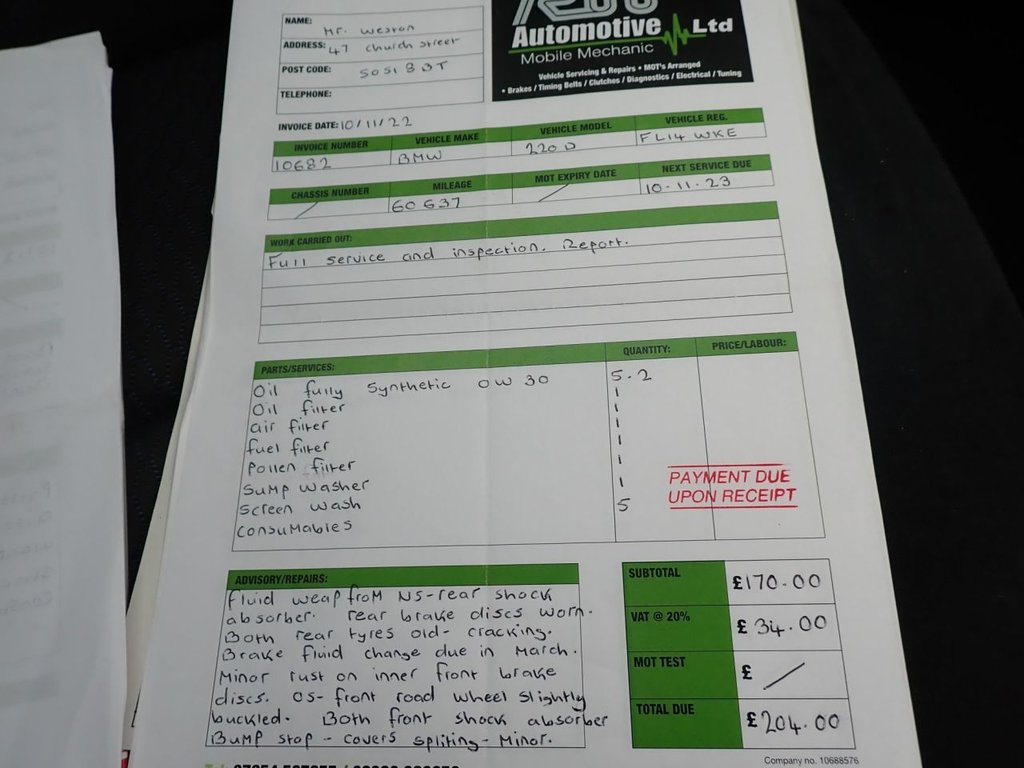 NAME: Mr. Weston
ADDRESS: 47 Church Street
POST CODE: SO51 8 BT
TELEPHONE:
Automotive Ltd
Mobile Mechanic
Vehicle Servicing & Repairs • MOT's Arranged
• Brakes / Timing Belts / Clutches / Diagnostics / Electrical / Tuning
INVOICE DATE: 10/11/22
INVOICE NUMBER VEHICLE MAKE VEHICLE MODEL VEHICLE REG.
10682 BMW 220 D FL14 WKE
CHASSIS NUMBER MILEAGE MOT EXPIRY DATE NEXT SERVICE DUE
/ 60637 / 10-11-23
WORK CARRIED OUT:
Full service and inspection. Report.
PARTS/SERVICES: QUANTITY: PRICE/LABOUR:
Oil fully Synthetic 0W30 5.2
Oil filter 1
air filter 1
fuel filter 1
Pollen filter 1
Sump Washer 1
Screen wash 5
Consumables
PAYMENT DUE
UPON RECEIPT
ADVISORY/REPAIRS:
fluid weap from NS-rear shock
absorber. rear brake discs worn.
Both rear tyres old- cracking.
Brake fluid change due in March.
Minor rust on inner front brake
discs. OS-front road wheel slightly
buckled. Both front shock absorber
Bump stop - covers spliting - Minor.
SUBTOTAL £170.00
VAT @ 20% £ 34.00
MOT TEST £ /
TOTAL DUE £204.00
Company no. 10688576